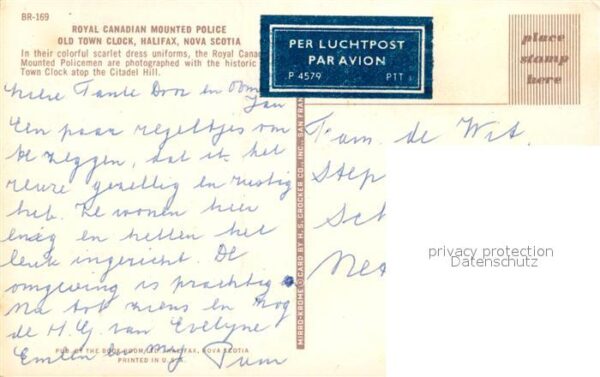 BR-169
ROYAL CANADIAN MOUNTED POLICE
OLD TOWN CLOCK, HALIFAX, NOVA SCOTIA
In their colorful scarlet dress uniforms, the Royal Canad
Mounted Policemen are photographed with the historic
Town Clock atop the Citadel Hill.
PER LUCHTPOST
PAR AVION
P 4579 PTT
place
stamp
here
Tante Door en Oom
Jan
Een paar regeltjes om
te zeggen, dat ik het
reuze gezellig en rustig
heb. Ze wonen hier
enig en hebben het
leuk ingericht. De
omgeving is prachtig
Na tot ziens en nog
de H.G. van Evelyne
en my
Fam. de Wit
Step
Sch
Ned
MIRRO-KROME CARD BY H. S. CROCKER CO., INC., SAN FRAN
privacy protection
Datenschutz
PUB. BY THE BOOK ROOM LTD., HALIFAX, NOVA SCOTIA
PRINTED IN U.S.A.